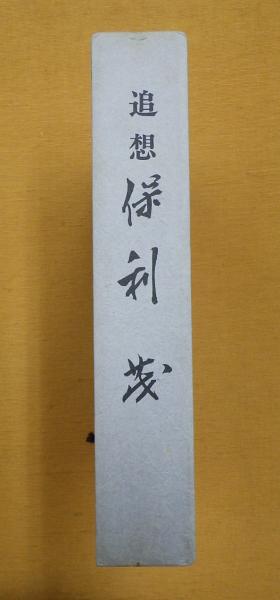 追想保利茂